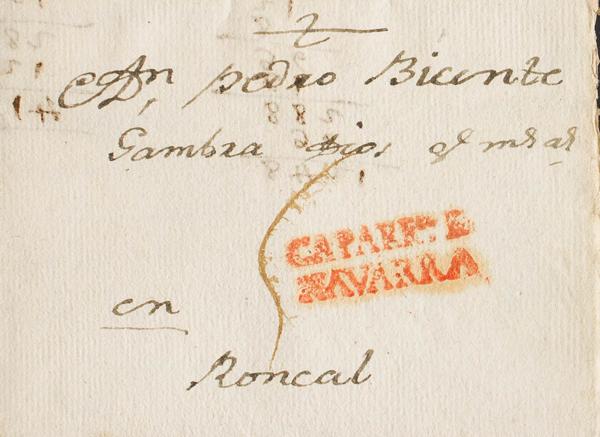 An Pedro Bicente
Gambra Dios
CAPARR
NAVARRA
en
Roncal